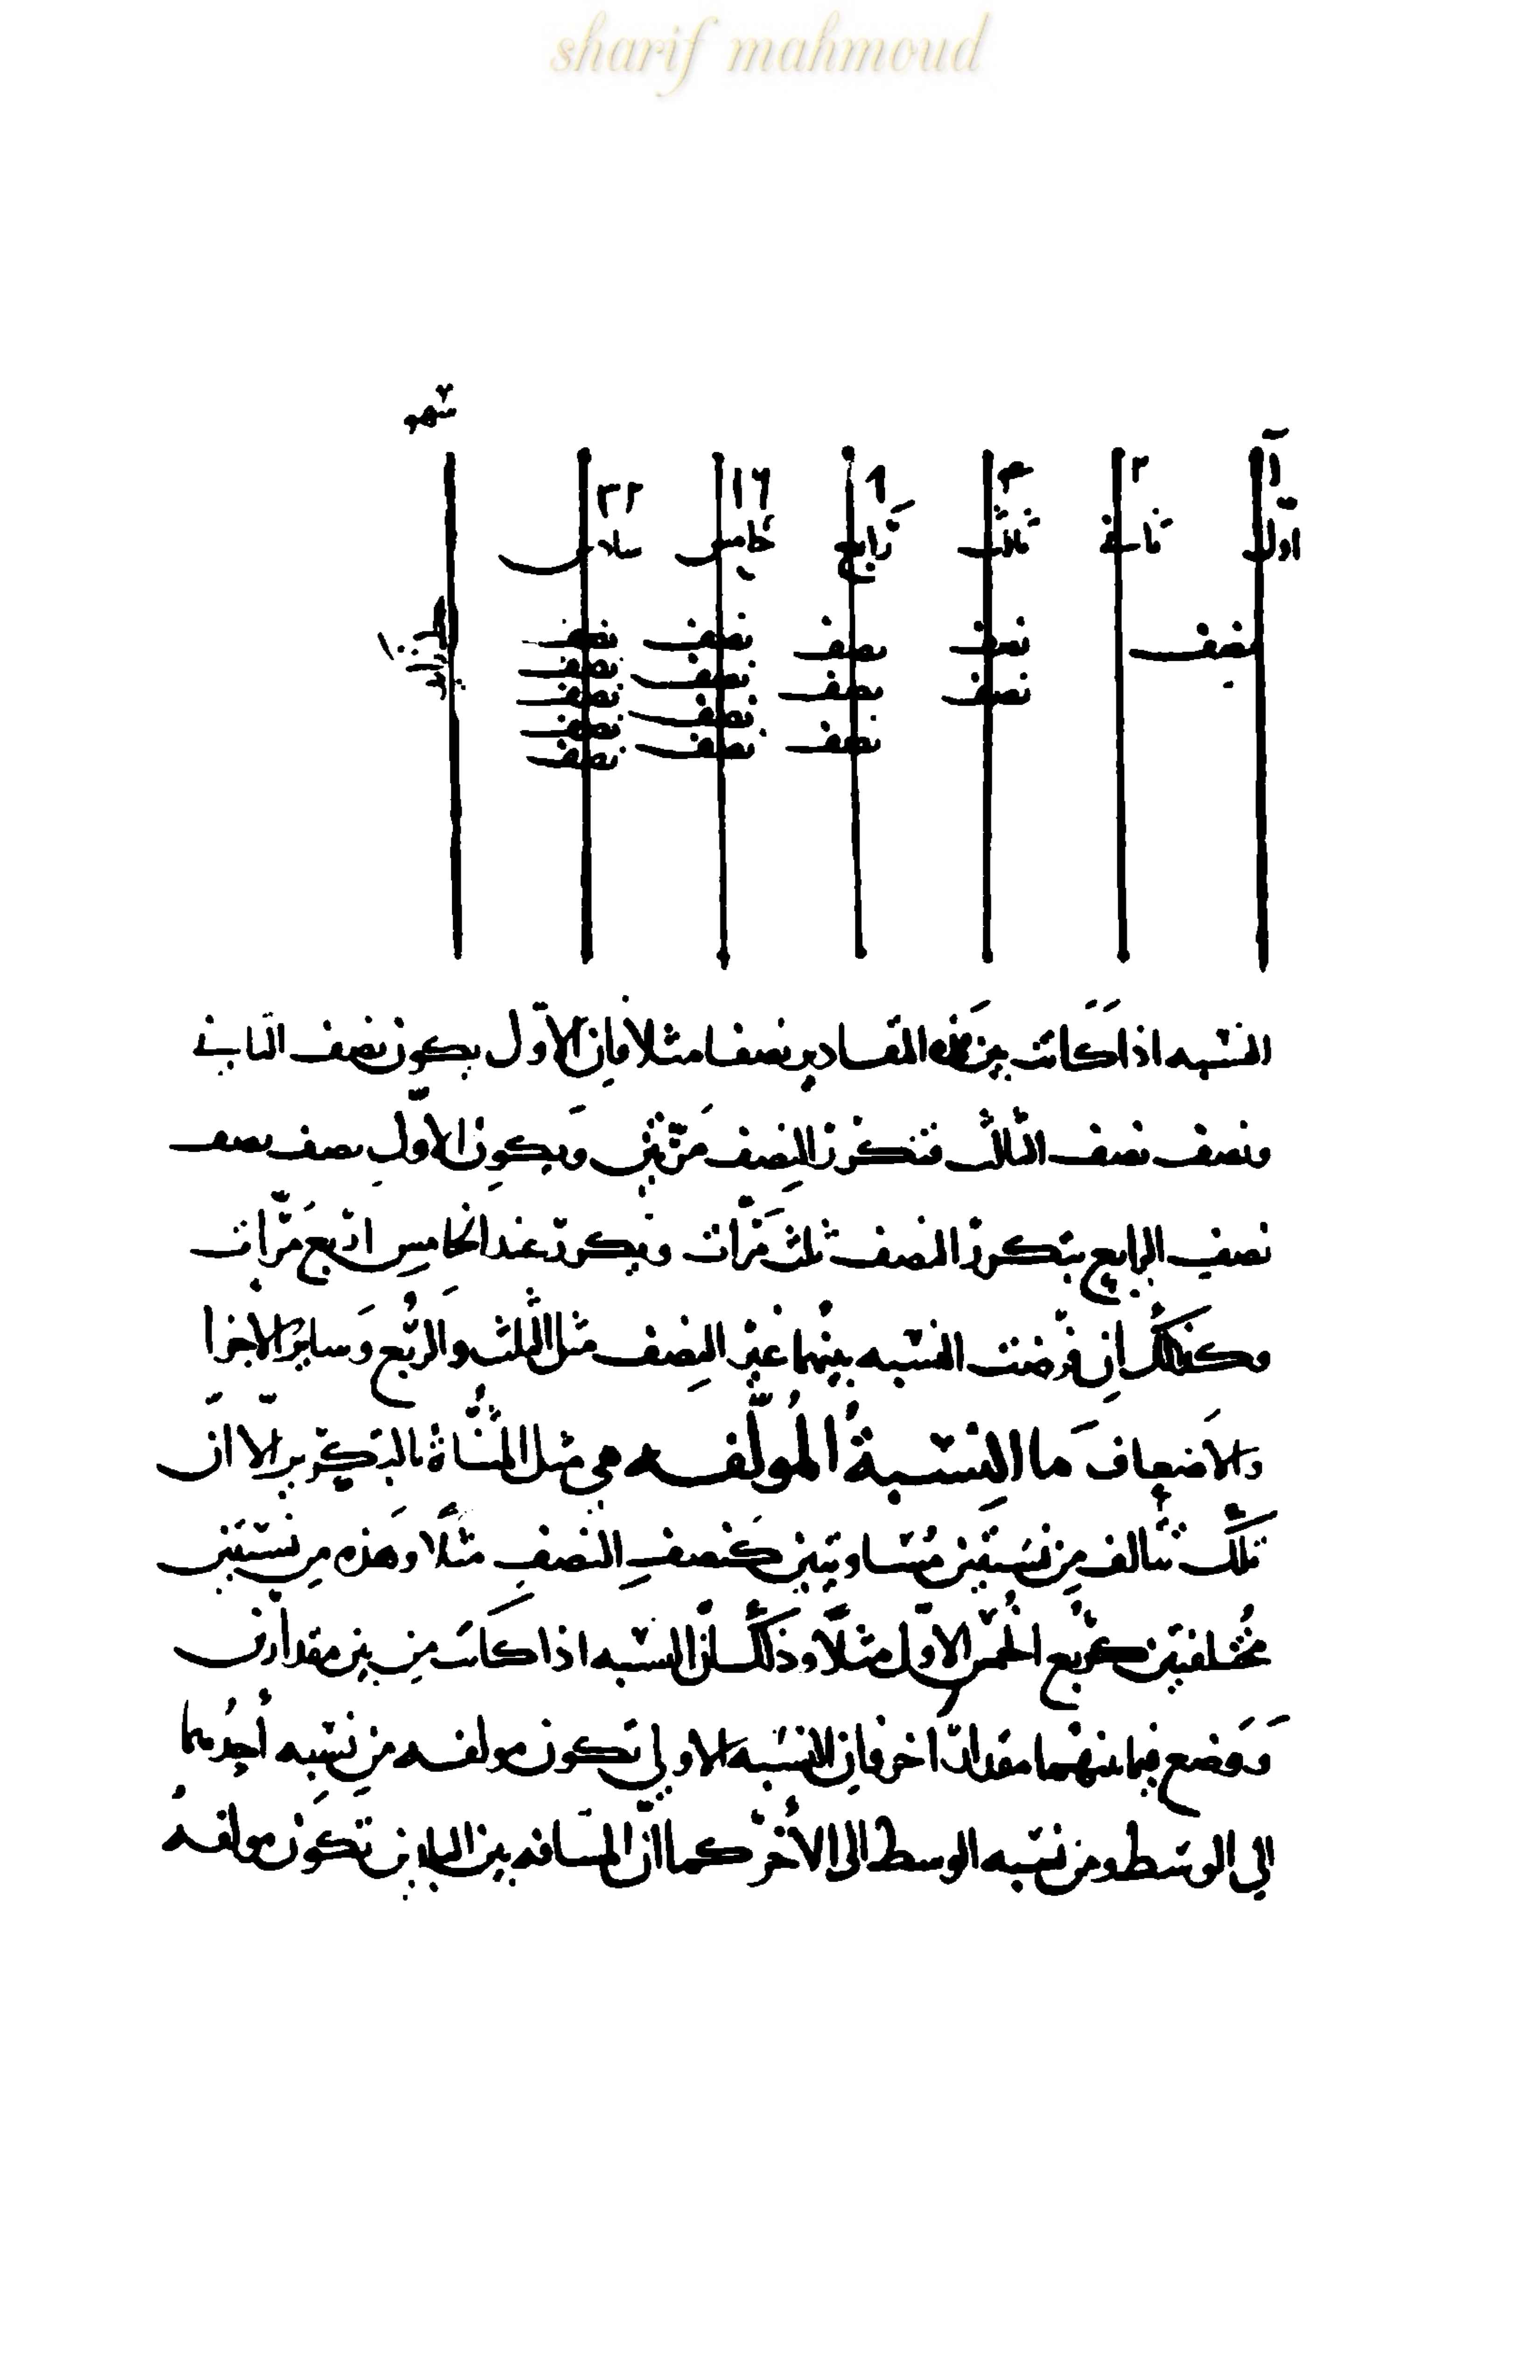 sharif mahmoud
سهو
١ ٢ ٤ ٨ ١٦ ٣٢
اول ثاني ثالث رابع خامس سادس
نصف نصف نصف نصف نصف
نصف نصف نصف نصف
نصف نصف نصف
نصف نصف
نصف
خط زايد
النسبه اذا كانت بين المقادير نصفا مثلا فان الاول يكون نصف الثاني
ونصف نصف الثالث فتكرر النصف مرتين ويكون الاول نصف نصف
نصف الرابع يتكرر النصف ثلث مرات ويكرر عند الخامس اربع مرات
وكذلك ان فرضت النسبه بينهما غير النصف مثل الثلث والربع وساير الاجزا
والاضعاف ما النسبة المولفه هي مثل المثناة بالتكرير الا ان
تلك تتالف من نسبتين متساويتين كنصف النصف مثلا وهذه من نسبتين
مختلفتين كربع الخمس الاول مثلا وذلك ان النسبه اذا كانت من بين مقدارين
ووضع فيما بينهما مقدار اخر فان النسبه الاولي تكون مولفه من نسبه احدهما
الي الوسط ومن نسبه الوسط الى الاخر كما ان المسافه بين البابين تكون مولفه